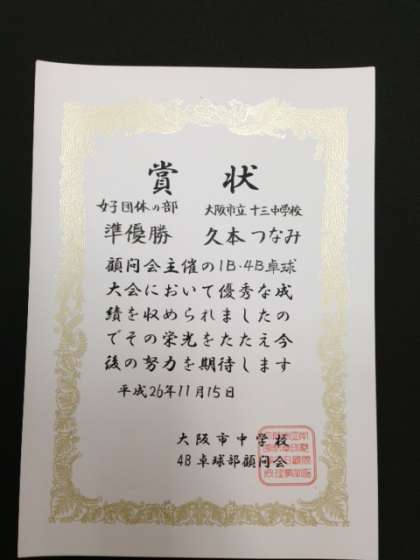 賞状
女子団体の部 大阪市立十三中学校
準優勝 久本つなみ
顧問会主催の1B・4B卓球
大会において優秀な成
績を収められましたの
でその栄光をたたえ今
後の努力を期待します
平成26年11月15日
大阪市中学校
4B卓球部顧問会